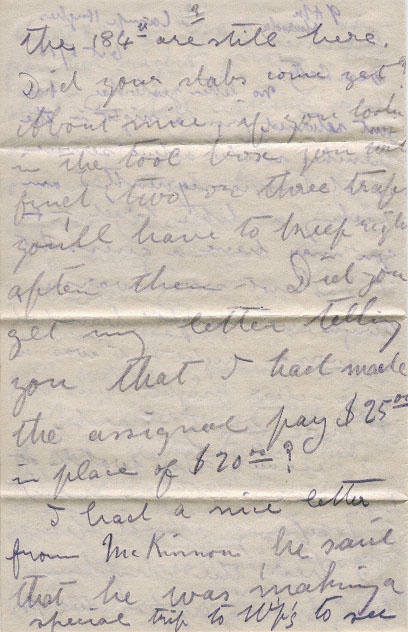 the 184th are still here.
Did your slabs come yet?
About mice, if you look
in the tool box you will
find two or three traps
you'll have to keep right
after them. Did you
get my letter telling
you that I had made
the assigned pay $25.00
in place of $20.00?
I had a nice letter
from McKinnon he said
that he was making a
special trip to W'p'g to see